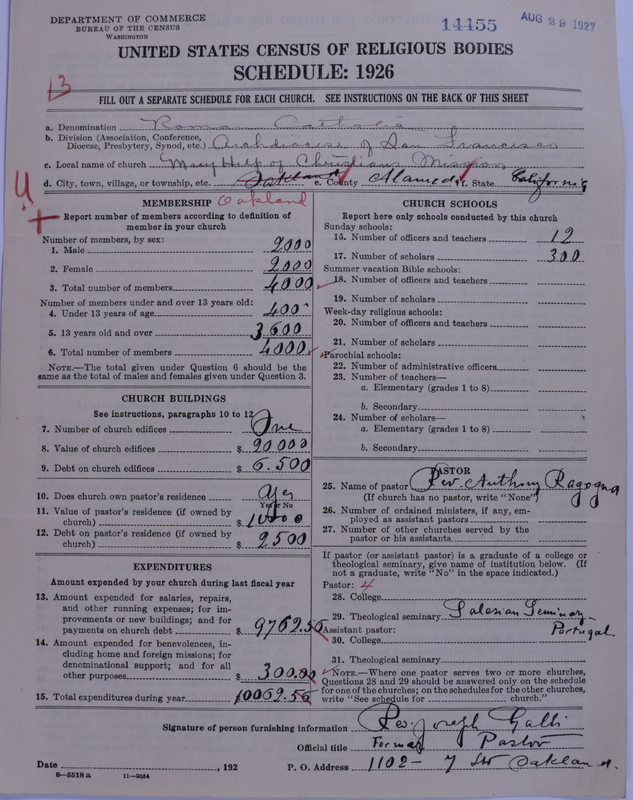 DEPARTMENT OF COMMERCE
BUREAU OF THE CENSUS
WASHINGTON
14455
AUG 29 1927
UNITED STATES CENSUS OF RELIGIOUS BODIES
SCHEDULE: 1926
13
FILL OUT A SEPARATE SCHEDULE FOR EACH CHURCH. SEE INSTRUCTIONS ON THE BACK OF THIS SHEET
a. Denomination Roman Catholic
b. Division (Association, Conference, Diocese, Presbytery, Synod, etc.) Archdiocese of San Francisco
c. Local name of church Mary Help of Christians Mission
d. City, town, village, or township, etc. Oakland e. County Alameda f. State California
4
MEMBERSHIP Oakland
Report number of members according to definition of
member in your church
Number of members, by sex:
1. Male 2000
2. Female 2000
3. Total number of members 4000
Number of members under and over 13 years old:
4. Under 13 years of age 400
5. 13 years old and over 3600
6. Total number of members 4000
NOTE.—The total given under Question 6 should be
same as the total of males and females given under Question 3.
CHURCH BUILDINGS
See instructions, paragraphs 10 to 12
7. Number of church edifices One
8. Value of church edifices $ 20000
9. Debt on church edifices $ 6.500
10. Does church own pastor's residence Yes
Yes or No
11. Value of pastor's residence (if owned by
church) $ 10000
12. Debt on pastor's residence (if owned by
church) $ 2500
EXPENDITURES
Amount expended by your church during last fiscal year
13. Amount expended for salaries, repairs,
and other running expenses; for im-
provements or new buildings; and for
payments on church debt $ 9762.56
14. Amount expended for benevolences, in-
cluding home and foreign missions; for
denominational support; and for all
other purposes $ 300.00
15. Total expenditures during year 10062.56
CHURCH SCHOOLS
Report here only schools conducted by this church
Sunday schools:
16. Number of officers and teachers 12
17. Number of scholars 300
Summer vacation Bible schools:
18. Number of officers and teachers
19. Number of scholars
Week-day religious schools:
20. Number of officers and teachers
21. Number of scholars
Parochial schools:
22. Number of administrative officers
23. Number of teachers—
a. Elementary (grades 1 to 8)
b. Secondary
24. Number of scholars—
a. Elementary (grades 1 to 8)
b. Secondary
PASTOR
25. Name of pastor Rev. Anthony Ragogna
(If church has no pastor, write "None")
26. Number of ordained ministers, if any, em-
ployed as assistant pastors
27. Number of other churches served by the
pastor or his assistants
If pastor (or assistant pastor) is a graduate of a college or
theological seminary, give name of institution below. (If
not a graduate, write "No" in the space indicated.)
Pastor: 4
28. College
29. Theological seminary Salesian Seminary
Portugal.
Assistant pastor:
30. College
31. Theological seminary
NOTE.—Where one pastor serves two or more churches,
Questions 28 and 29 should be answered only on the schedule
for one of the churches; on the schedules for the other churches,
write "See schedule for church."
Signature of person furnishing information Rev. Joseph Galli
Official title Former Pastor
Date , 192 P. O. Address 1102 - 7 St Oakland.
8—5518 a 11—9054